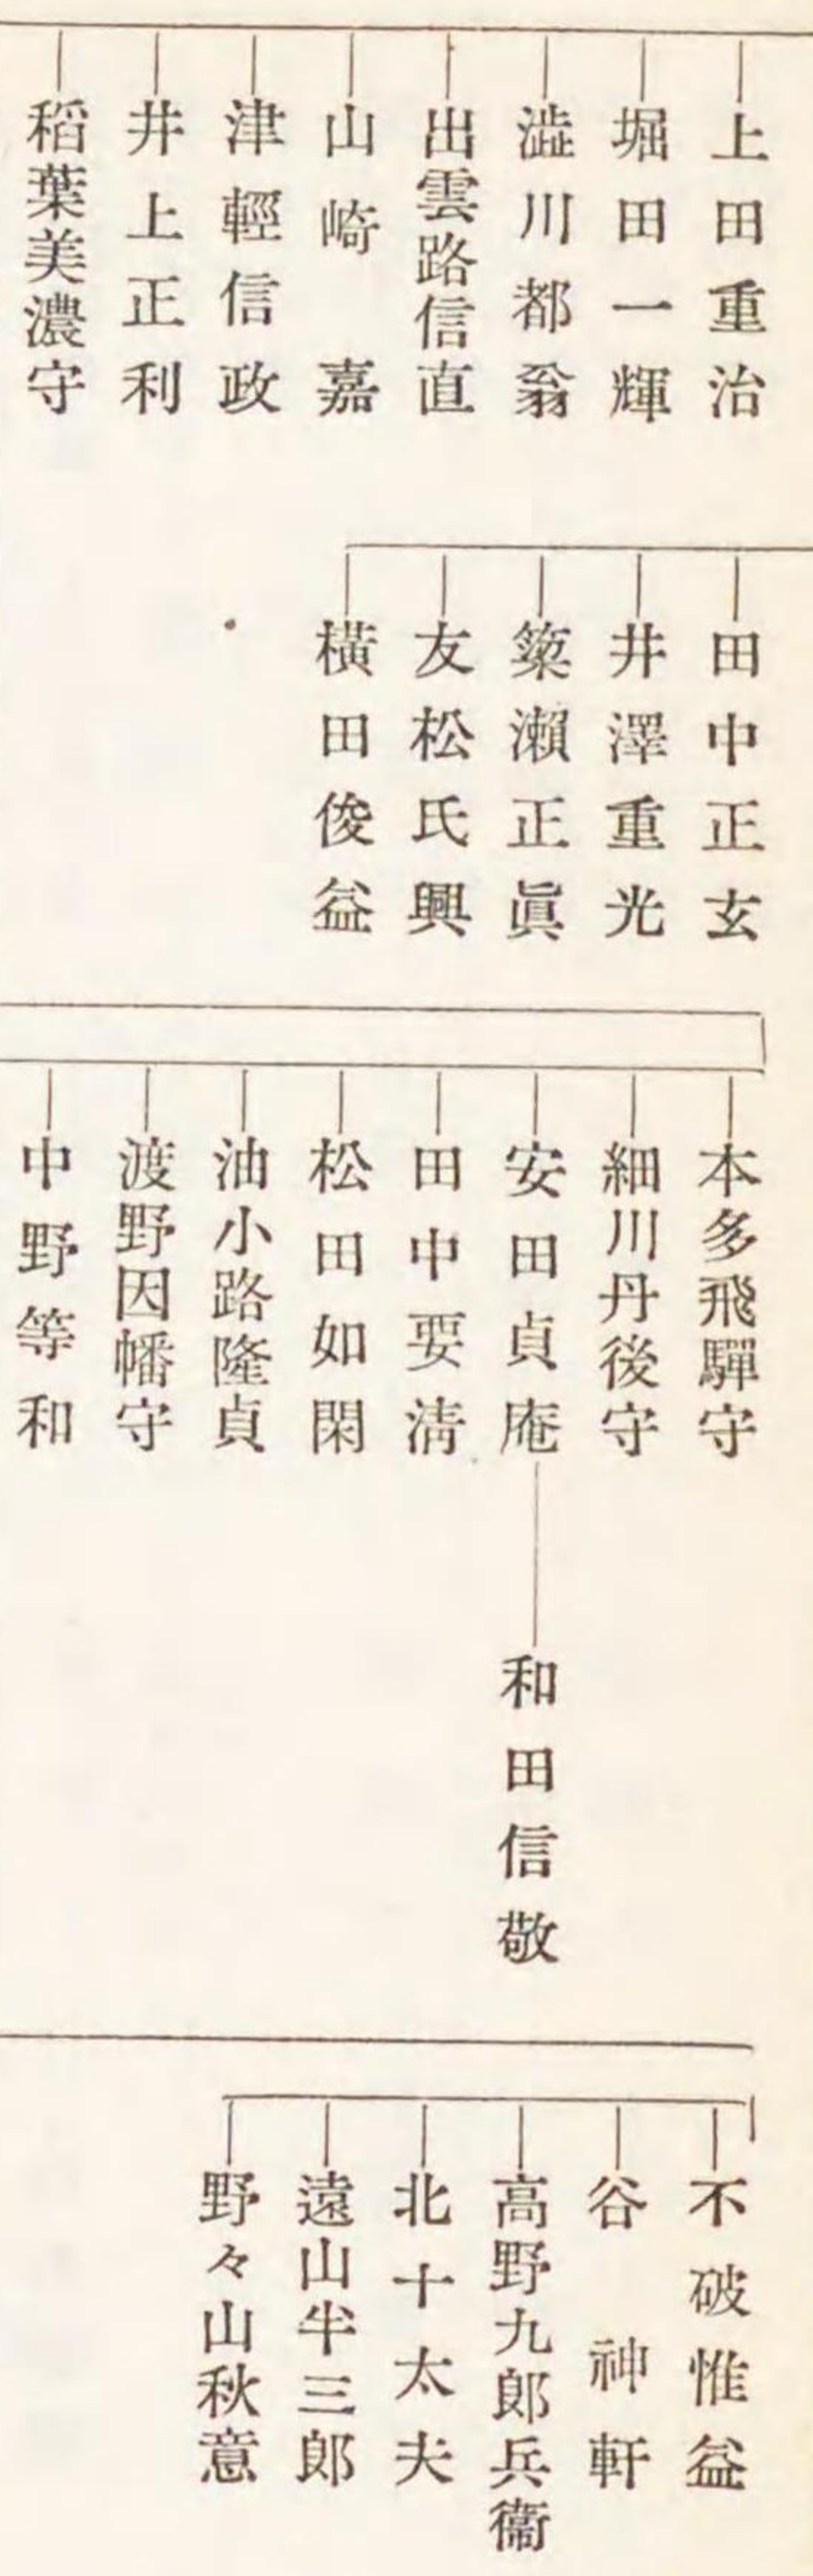 上田重治
堀田一輝
澁川都翁
出雲路信直
山崎嘉
津輕信政
井上正利
稻葉美濃守
田中正玄
井澤重光
簗瀬正眞
友松氏興
橫田俊益
本多飛驒守
細川丹後守
安田貞庵
和田信敬
田中要淸
松田如閑
油小路隆貞
渡野因幡守
中野等和
不破惟益
谷神軒
高野九郎兵衞
北十太夫
遠山半三郎
野々山秋意